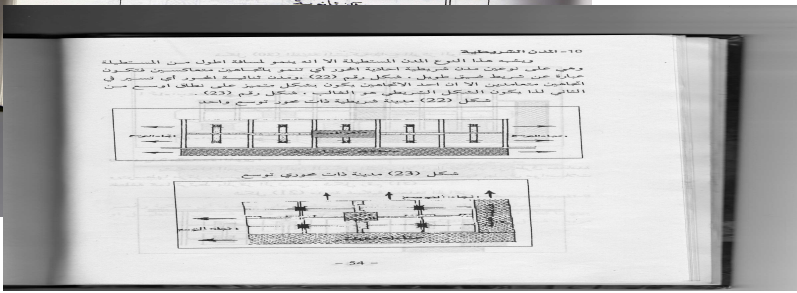 10- المدن الشريطية
ويشبه هذا النوع المدن المستطيلة الا انه ينمو لمسافة اطول من المستطيلة
وهي على نوعين مدن شريطية احادية المحور أي تنمو باتجاهين متعاكسين فتكون
عبارة عن شريط ضيق طويل ، شكل رقم (22) ومدن ثنائية المحور أي تسير في
اتجاهين متعامدين الا ان احد الاتجاهين يكون بشكل متميز على نطاق اوسع من
الثاني لذا يكون الشكل الشريطي هو الغالب ، شكل رقم (23)
شكل (22) مدينة شريطية ذات محور توسع واحد
اتجاه التوسع
اتجاه التوسع
شكل (23) مدينة ذات محوري توسع
اتجاه التوسع
اتجاه التوسع
- 54 -